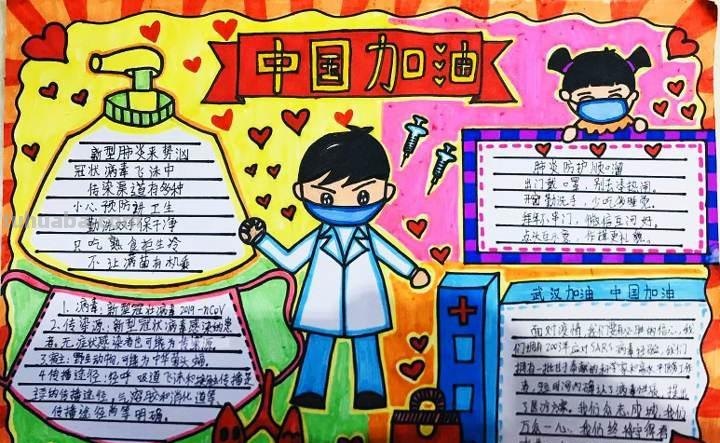 中国加油
新型肺炎来势汹
冠状病毒飞沫中
传染渠道有多种
小心预防讲卫生
勤洗双手保干净
只吃熟食拒生冷
不让病菌有机乘
1、病毒:新型冠状病毒2019-nCoV
2、传染源:新型冠状病毒感染的患
者,无症状感染者也可能为传染源。
3、宿主:野生动物,可能为中华菊头蝠。
4、传播途径:经呼吸道飞沫和接触传播是
主要的传播途径,气溶胶和消化道等
传播途径尚待明确。
肺炎防护顺口溜
出门戴口罩,别去凑热闹。
开窗勤洗手,少吃
串门,微信互问好。
点头
武汉加油 中国加油
面对疫情,我们要有必胜的信心,我
们拥有2003年应对SARS病毒经验,我们
拥有一批甘于奉献的科学家和
者,短时间内确认了病毒
了医疗方案。我们众志成城,我们
万众一心,